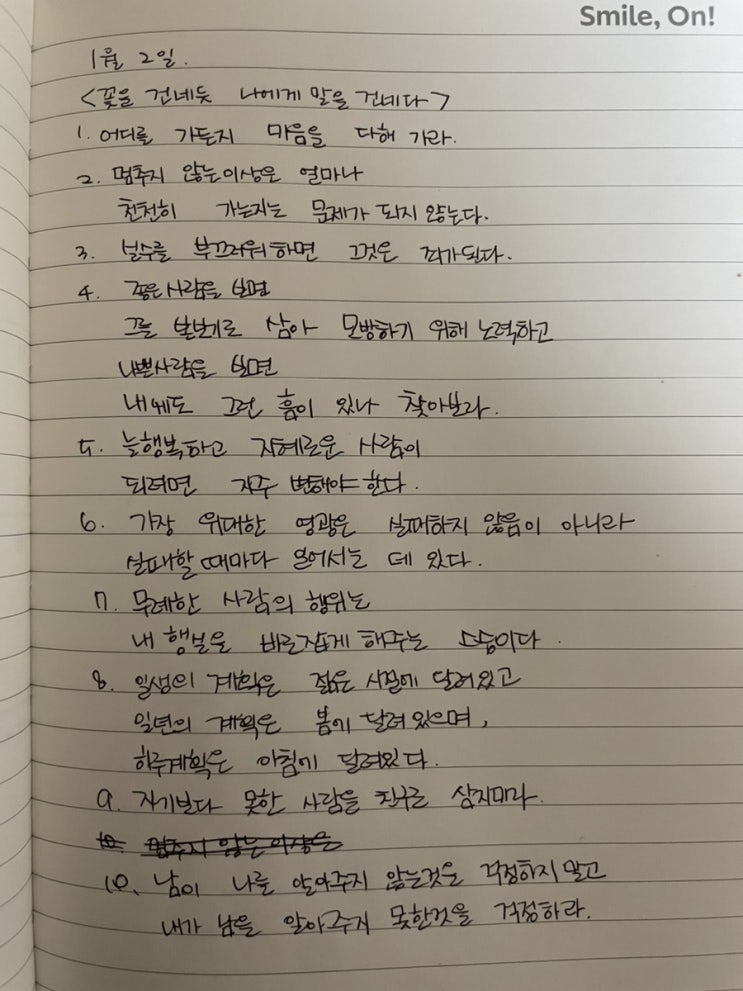 Smile, On!
1월 2일.
<꽃을 건네듯 나에게 말을 건네다>
1. 어디를 가든지 마음을 다해 가라.
2. 멈추지 않는이상은 얼마나
천천히 가는지는 문제가 되지 않는다.
3. 실수를 부끄러워하면 그것은 죄가된다.
4. 좋은사람을 보면
그를 본보기로 삼아 모방하기 위해 노력하고
나쁜사람을 보면
내게도 그런 흠이 있나 찾아보라.
5. 늘행복하고 지혜로운 사람이
되려면 자주 변해야한다.
6. 가장 위대한 영광은 실패하지 않음이 아니라
실패할 때마다 일어서는 데 있다.
7. 무례한 사람의 행위는
내 행실을 바로잡게 해주는 스승이다.
8. 일생의 계획은 젊은 시절에 달려있고
일년의 계획은 봄에 달려있으며,
하루계획은 아침에 달려있다.
9. 자기보다 못한 사람을 친구로 삼지마라.
10. 멈추지 않는이상은
10. 남이 나를 알아주지 않는것은 걱정하지말고
내가 남을 알아주지 못한것을 걱정하라.